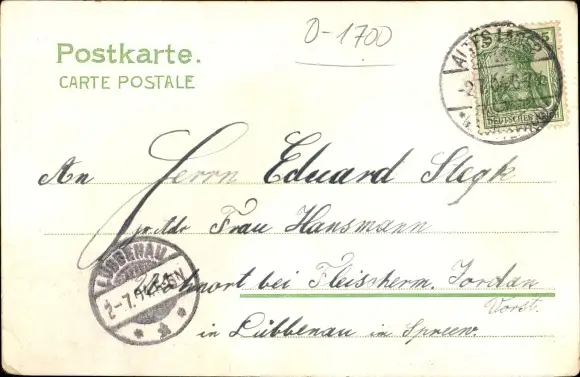 Postkarte.
CARTE POSTALE
D-1700
DEUTSCHES REICH
An Herrn Eduard Stegk
Frau Hansmann
bei Fleischerm. Jordan
Vorst.
in Lübbenau im Spreew.
LÜBBENAU